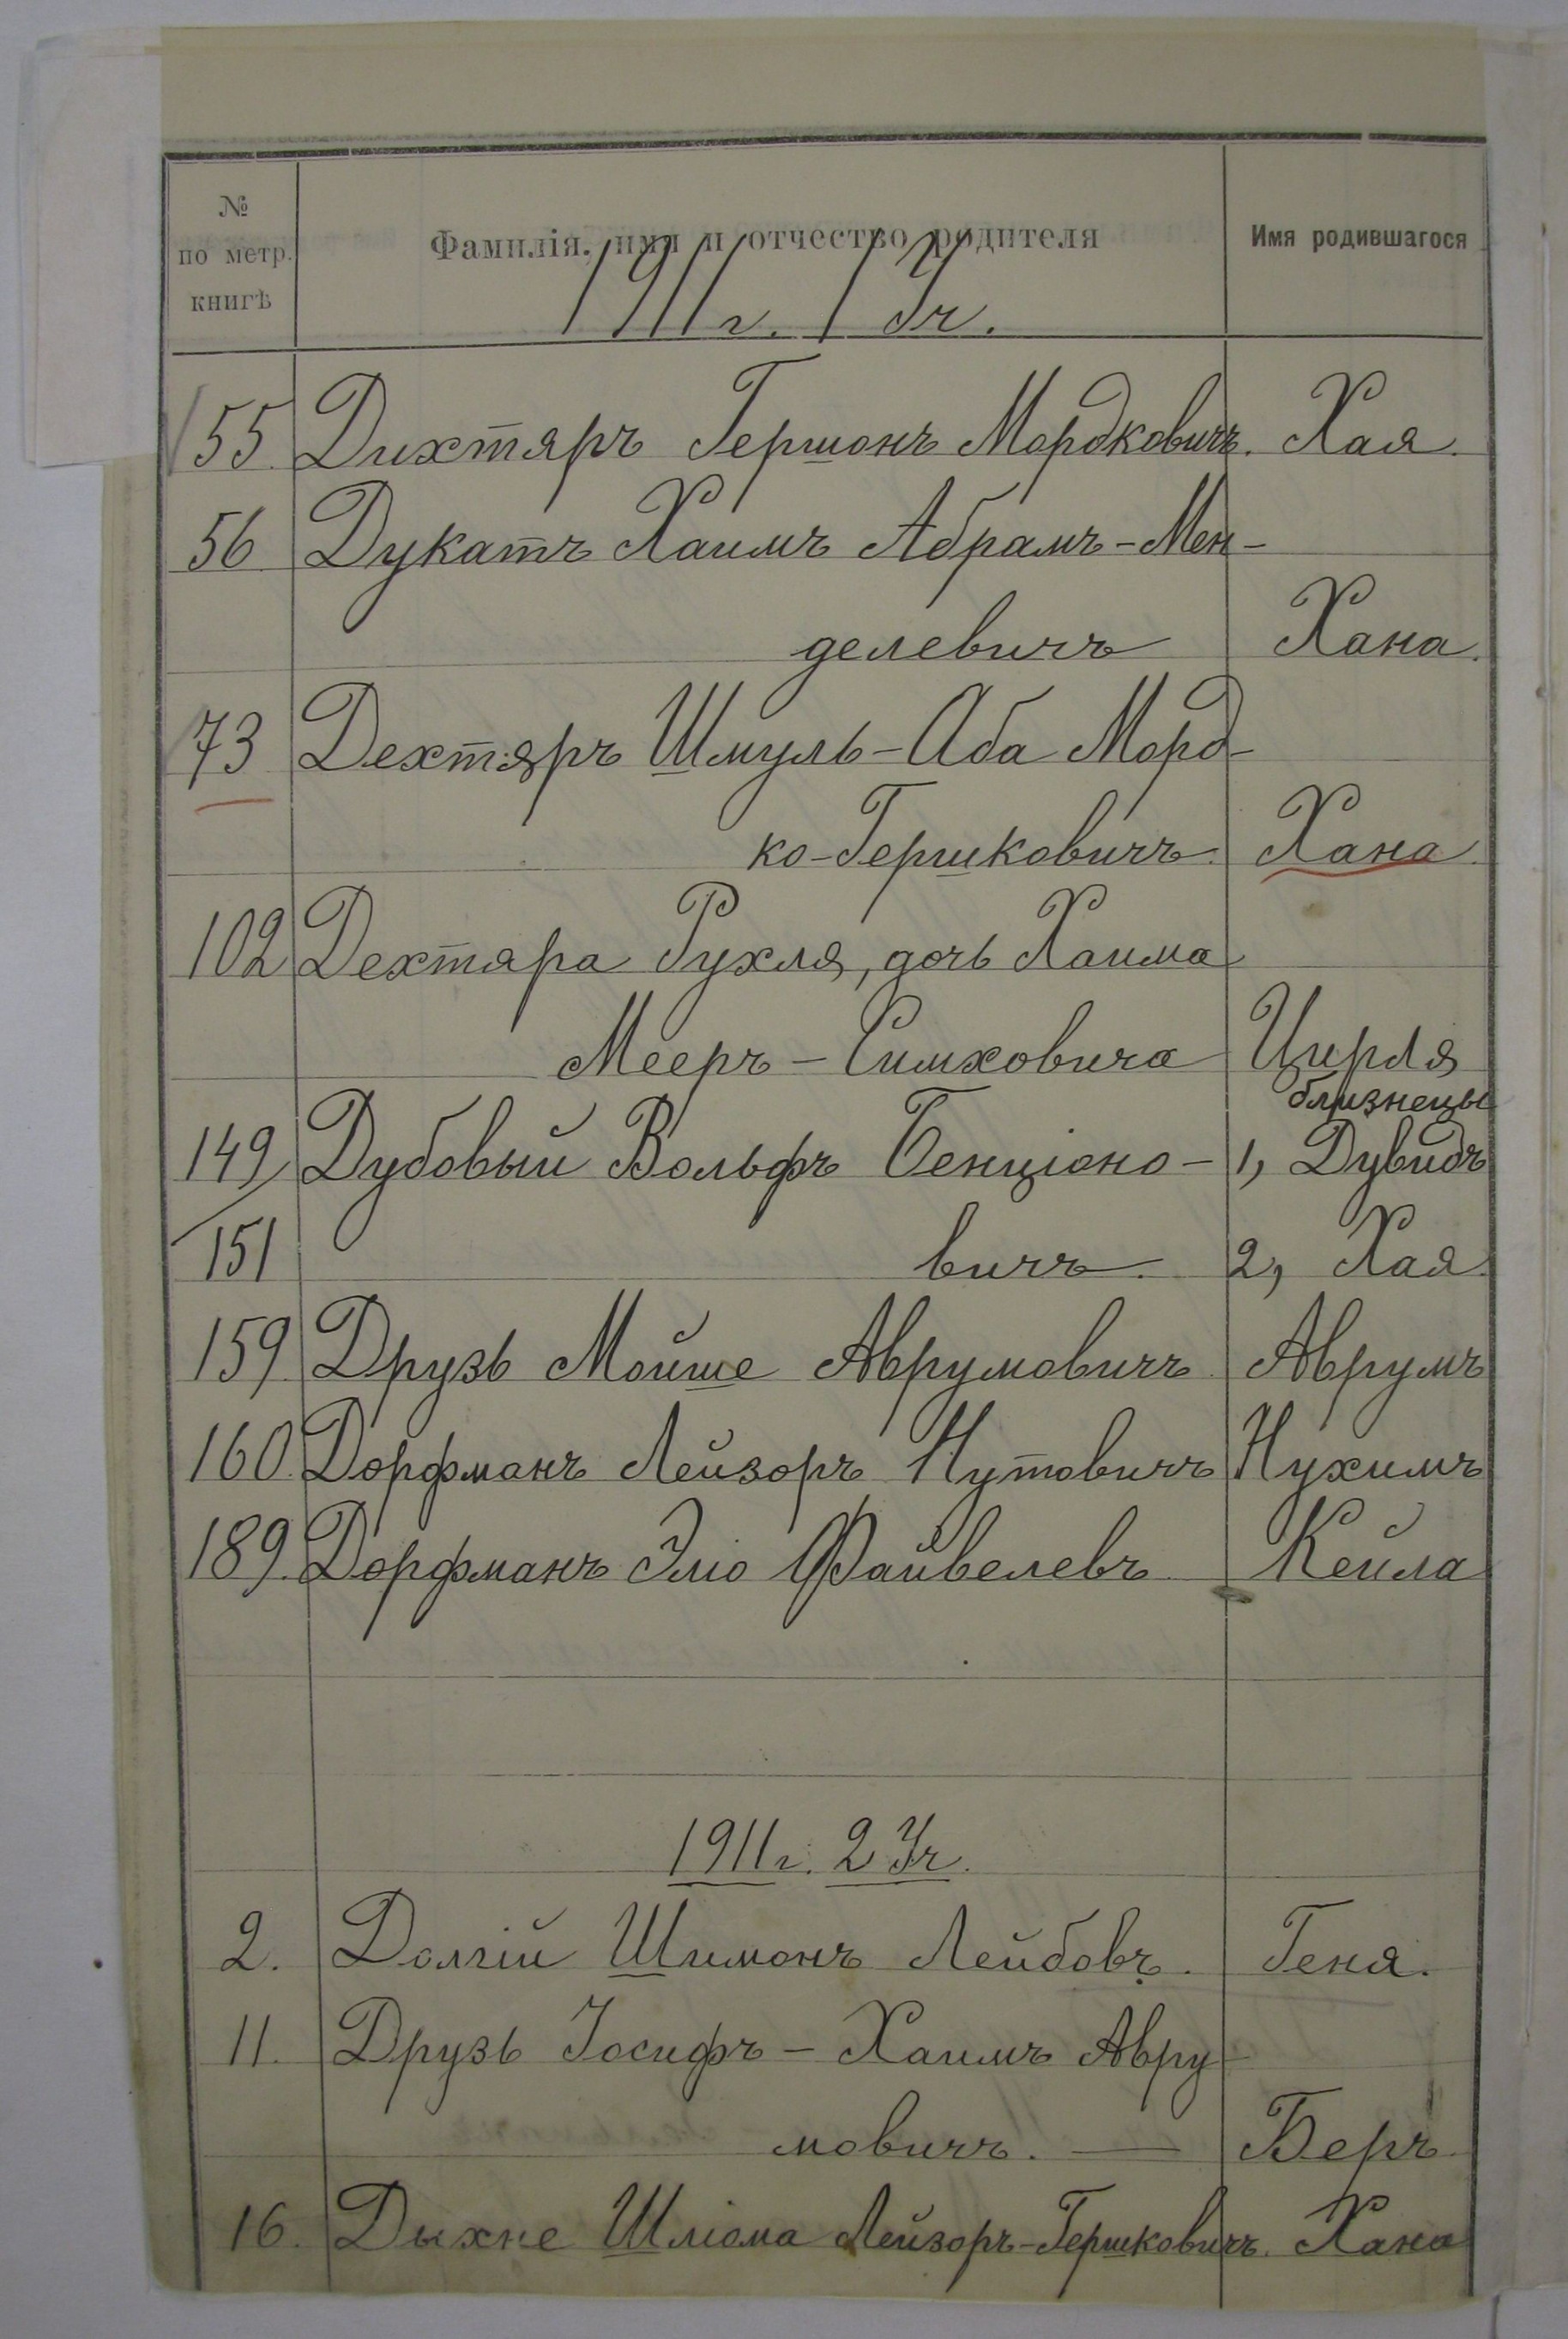 № по метр. книгѣ Фамилія, имя и отчество родителя Имя родившагося
1911 г. 1 Уч.
55 Дихтяръ Гершонъ Мордковичъ. Хая.
56 Дукатъ Хаимъ Абрамъ-Мен-
делевичъ Хана.
73 Дехтяръ Шмуль-Аба Морд-
ко-Гершковичъ. Хана
102 Дехтяра Рухля, дочь Хаима
Мееръ-Симховича Цирля
близнецы
149/ Дубовый Вольфъ Бенціоно- 1, Дувидъ
151 вичъ. 2, Хая.
159 Друзь Мойше Аврумовичъ. Аврумъ
160. Дорфманъ Лейзоръ Нутовичъ Нухимъ
189. Дорфманъ Эліо Файвелевъ Кейла
1911 г. 2 Уч.
2. Долгій Шимонъ Лейбовъ. Геня.
11. Друзь Іосифъ-Хаимъ Авру-
мовичъ. — Беръ
16. Дыхне Шліома Лейзоръ-Гершковичъ. Хана